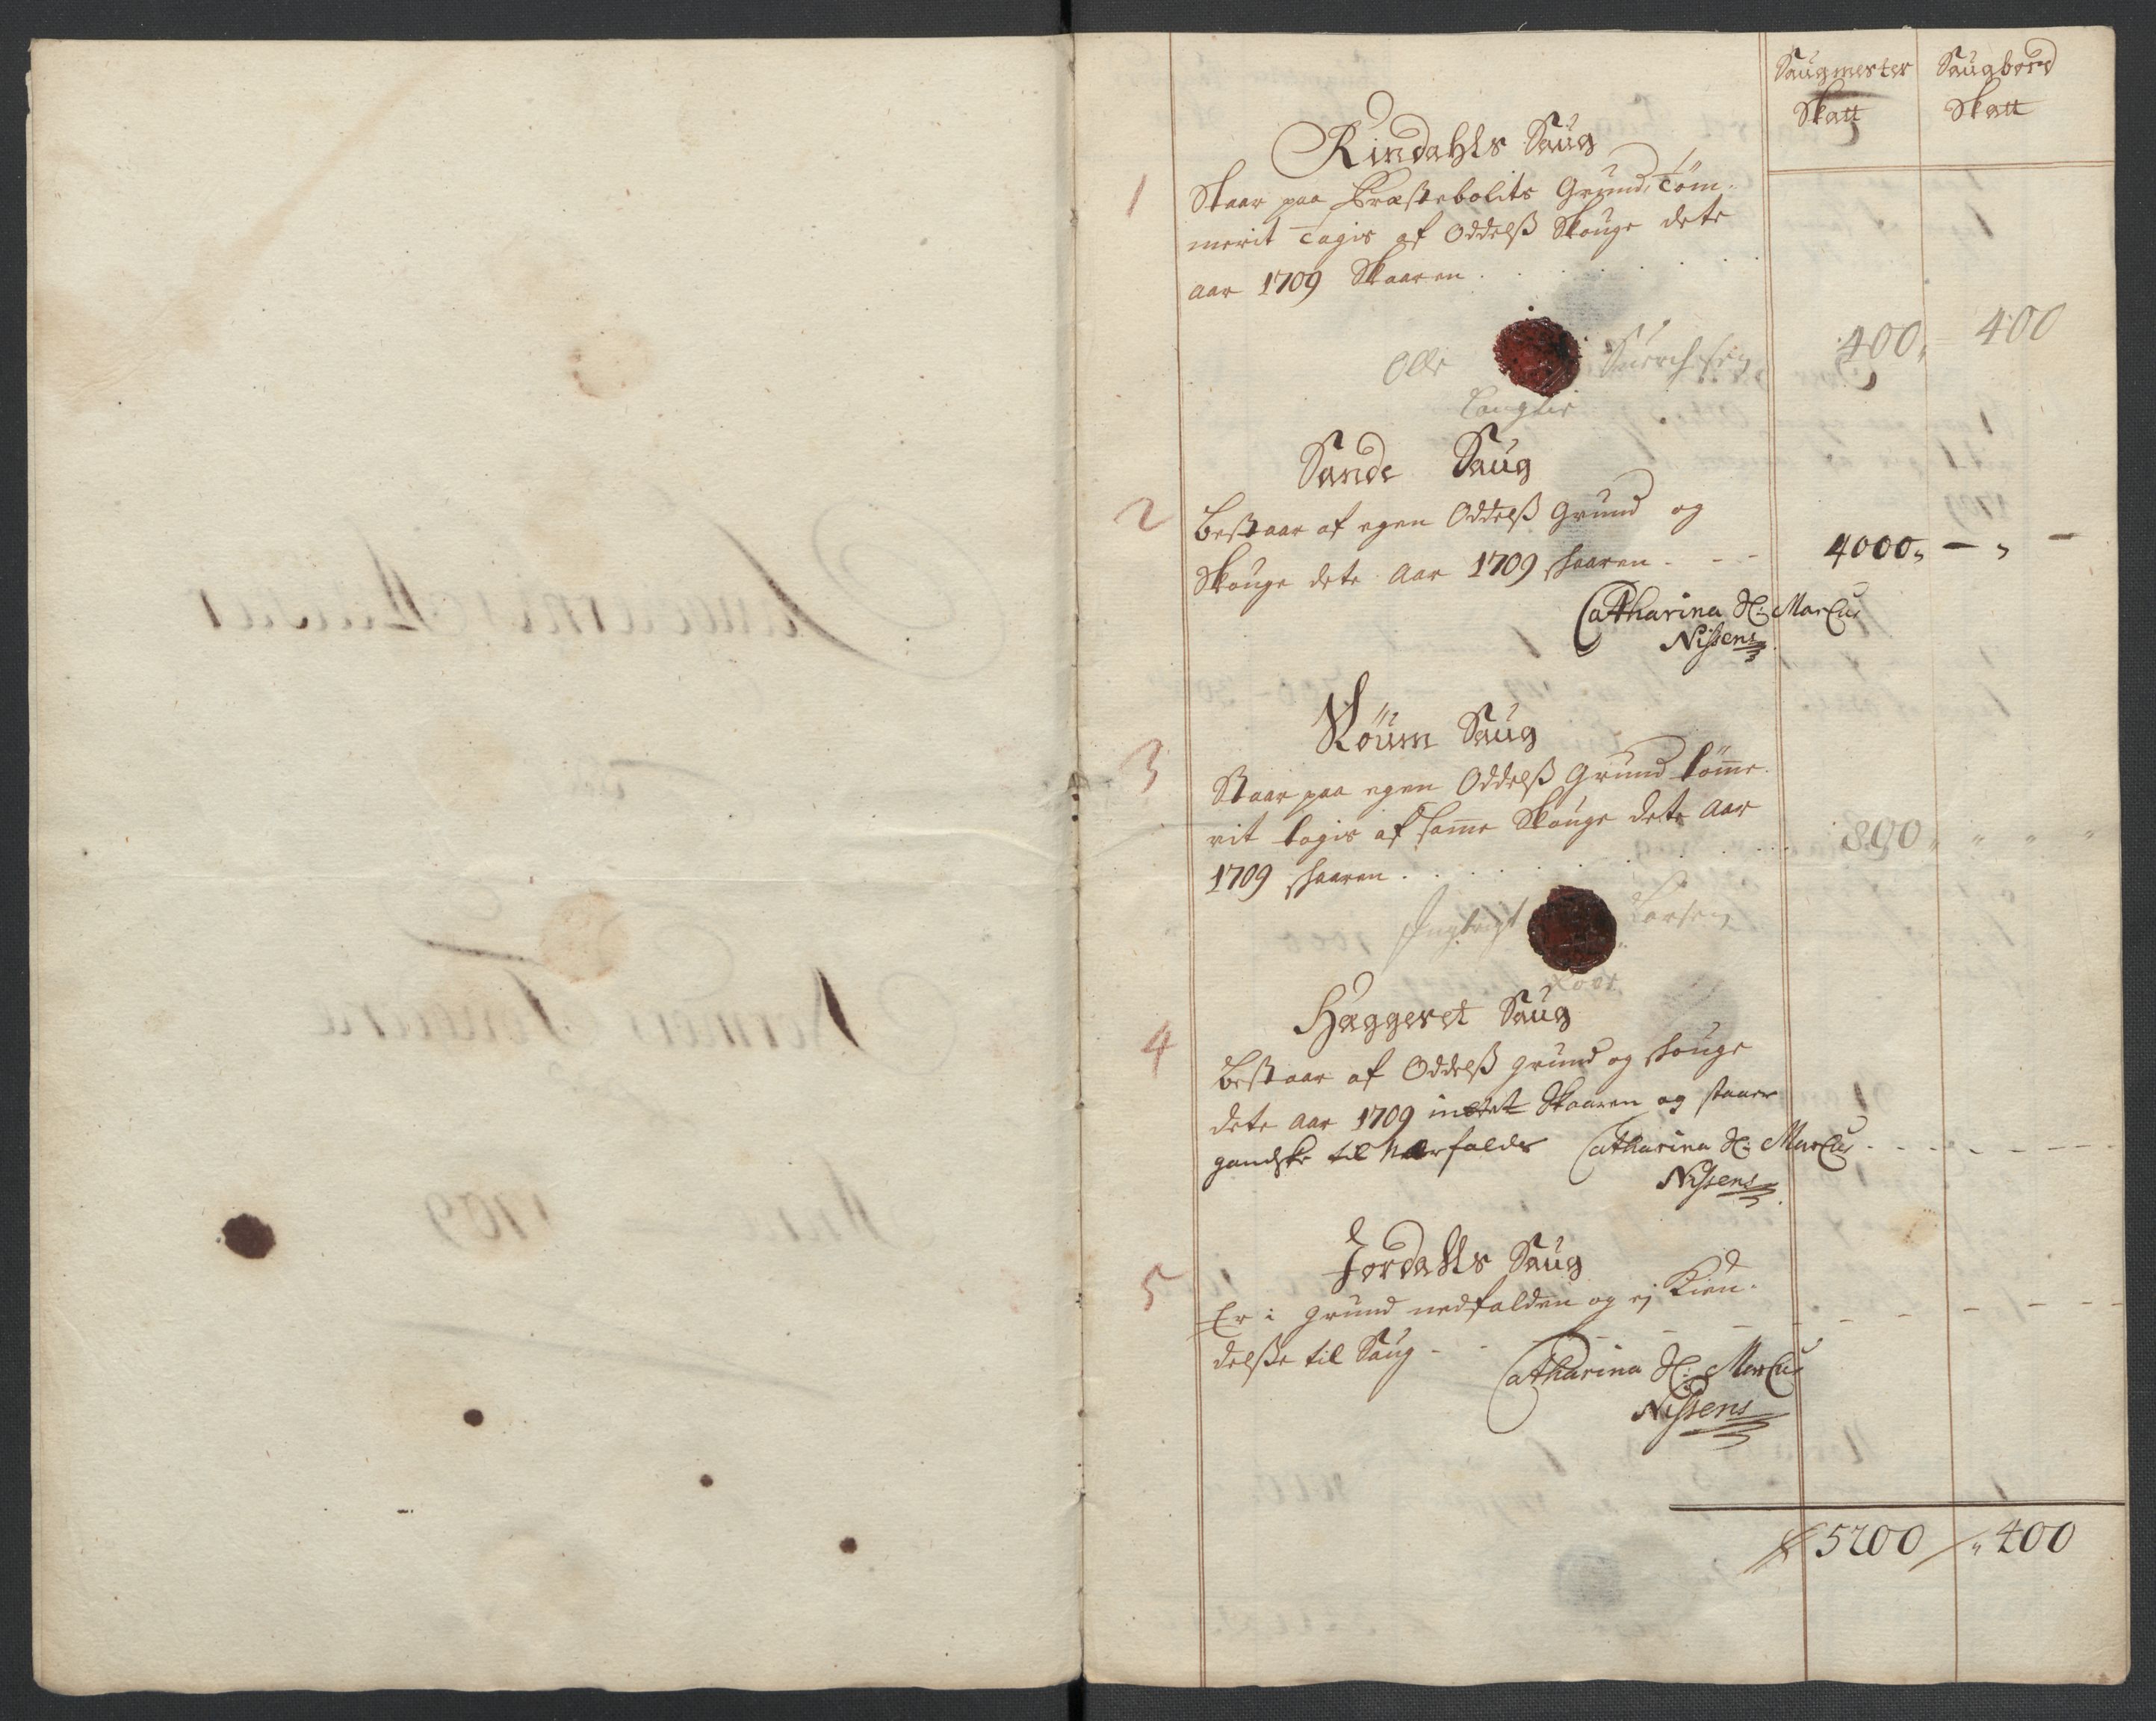 Saugmester Saugbord
Skatt Skatt
Rindahls Saug
1 Staar paa Præstebolits Grund, Tøm-
merit Tagis af Oddelß Skouge dete
aar 1709 Skaaren . . . . . .
400„ 400
Olle
Sande Saug
2 Bestaar af egen Oddelß Grund og
Skouge dete Aar 1709 skaaren - - - 4000„ — „ —
Catharina Sl: Marcus
Nissens
Roum Saug
3 Staar paa egen Oddelß Grund tømme-
rit tagis af samme Skouge dete Aar
1709 skaaren . . . . . . 800 „ „ „ „
Ingbrigt Larsen
Hæggeret Saug
4 Bestaar af Oddelß grund og skouge
dete Aar 1709 intet Skaaren og staaer
gandske til Nærfalds Catharina Sl: Marcus - - - - - -
Nissens
Jordahls Saug
5 Er i grund nedfalden og ej Kien-
delße til Saug - - - - - - - - - -
Catharina Sl: Marcus
Nissens
5200 „ 400